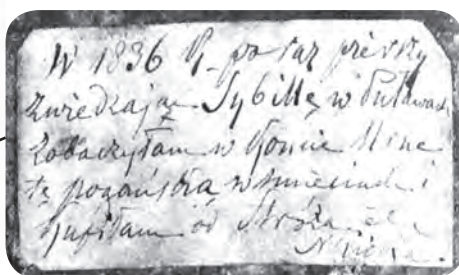 W 1836 R. po raz pierwszy
zwiedzając Sybillę w Puławach
zobaczyłam w
tę pogańską w śmieciach i
kupiłam od Stróża